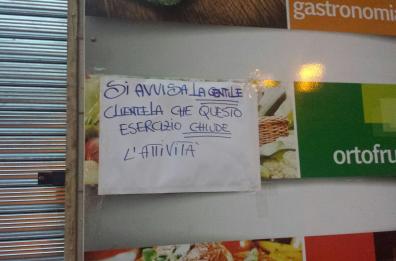 gastronomia
SI AVVISA LA GENTILE
CLIENTELA CHE QUESTO
ESERCIZIO CHIUDE
L'ATTIVITA'
ortofru